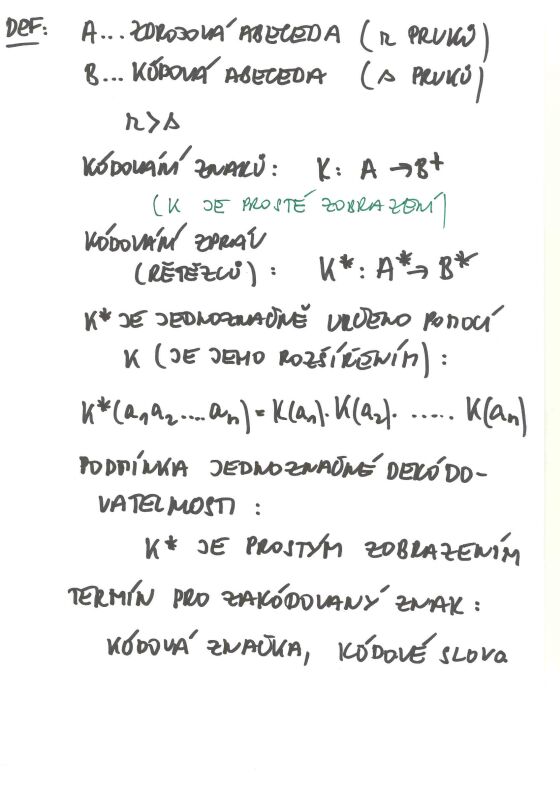 DEF: A... ZDROJOVÁ ABECEDA (r PRVKŮ)
B... KÓDOVÁ ABECEDA (s PRVKŮ)
r > s
KÓDOVÁNÍ ZNAKŮ: K: A → B⁺
(K JE PROSTÉ ZOBRAZENÍ)
KÓDOVÁNÍ ZPRÁV
(ŘETĚZCŮ): K*: A* → B*
K* JE JEDNOZNAČNĚ URČENO POMOCÍ
K (JE JEHO ROZŠÍŘENÍM):
K*(a₁a₂....aₙ) = K(a₁). K(a₂). ..... K(aₙ)
PODMÍNKA JEDNOZNAČNÉ DEKÓDO-
VATELNOSTI:
K* JE PROSTÝM ZOBRAZENÍM
TERMÍN PRO ZAKÓDOVANÝ ZNAK:
KÓDOVÁ ZNAČKA, KÓDOVÉ SLOVO